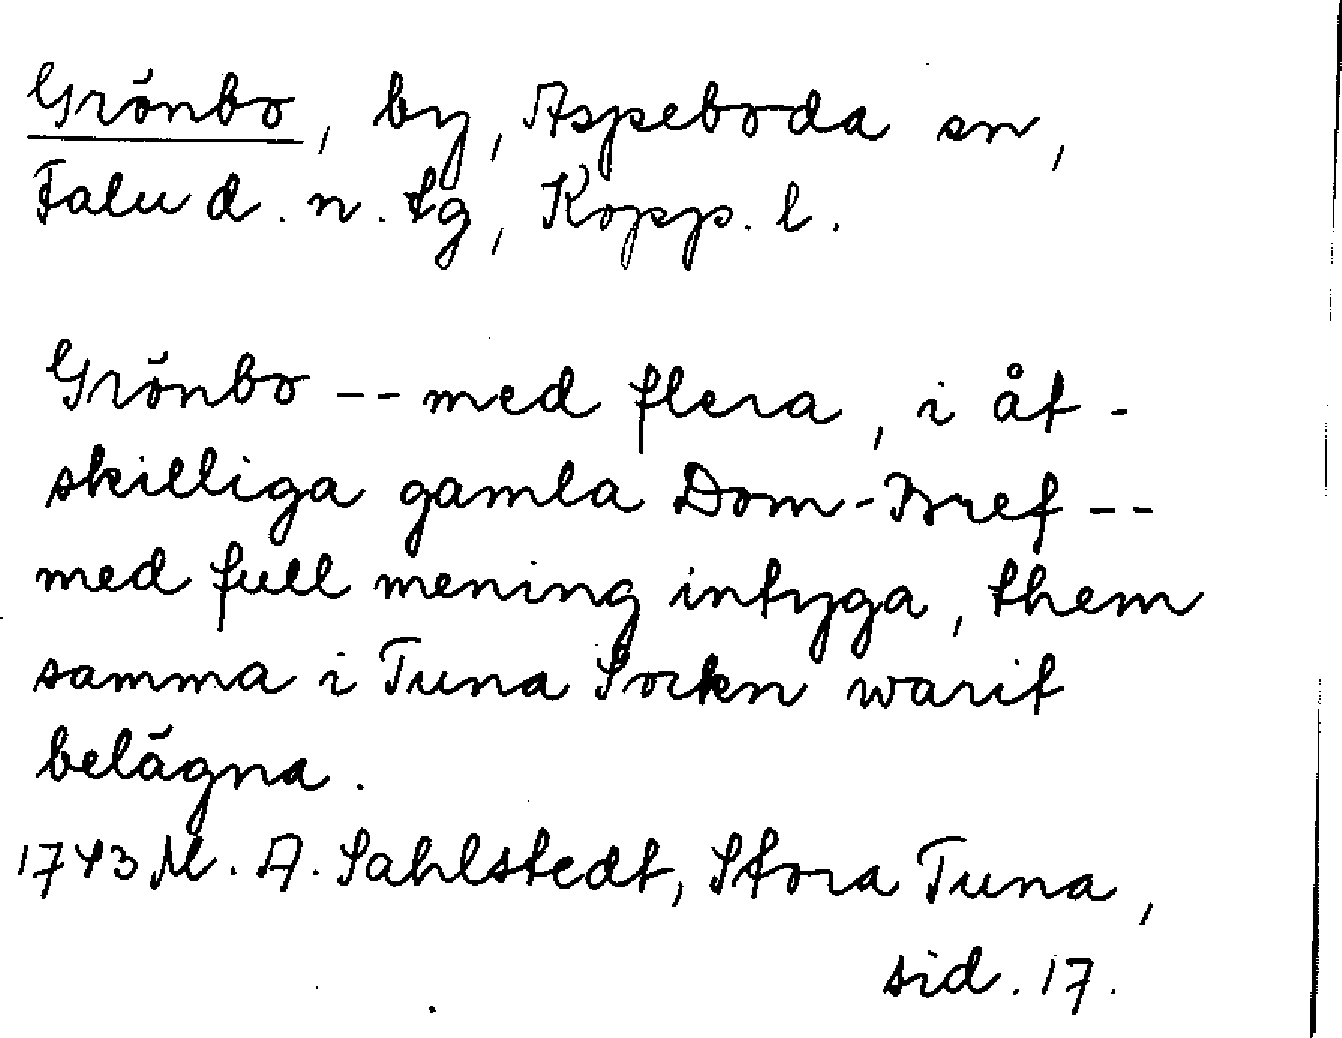 Grönbo, by, Aspeboda sn,
Falu d. n. tg, Kopp. l.
Grönbo -- med flera, i åt-
skilliga gamla Dom-Bref --
med full mening intyga, them
samma i Tuna Sockn warit
belägna.
1743 M. A. Sahlstedt, Stora Tuna,
sid. 17.